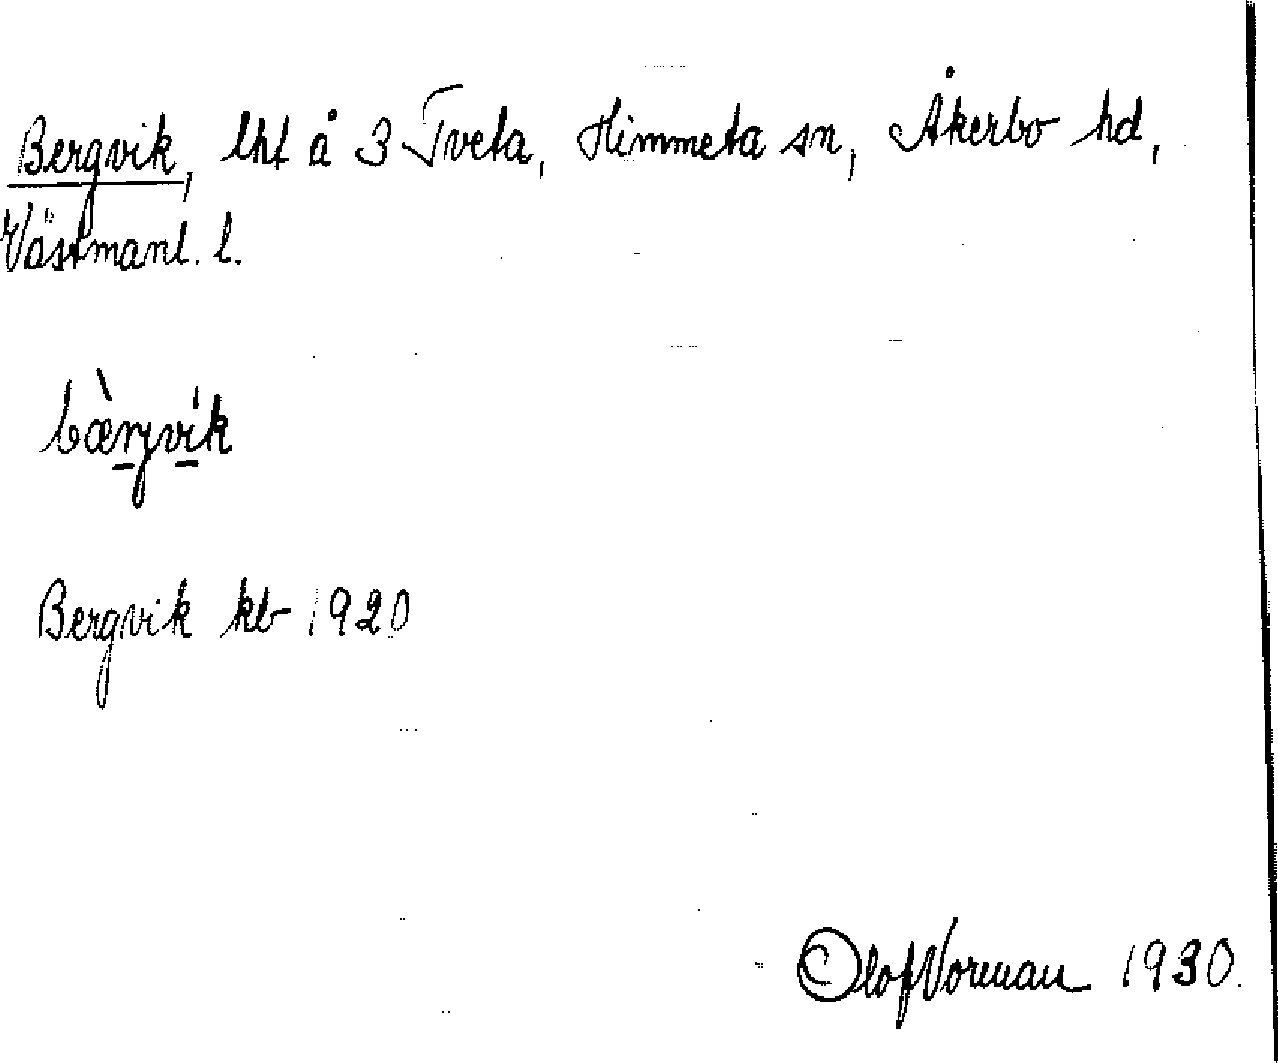 Bergvik, lht å 3 Tveta, Himmeta sn, Åkerbo hd,
Västmanl. l.
bæ̀rjvik
Bergvik kb 1920
Olof Vorman 1930.